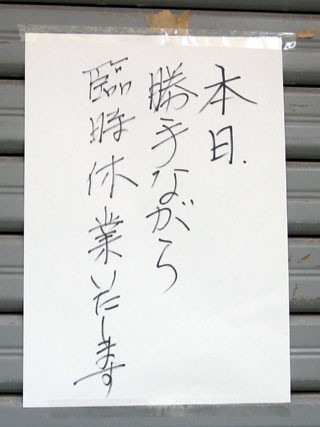 本日、
勝手ながら
臨時休業いたします